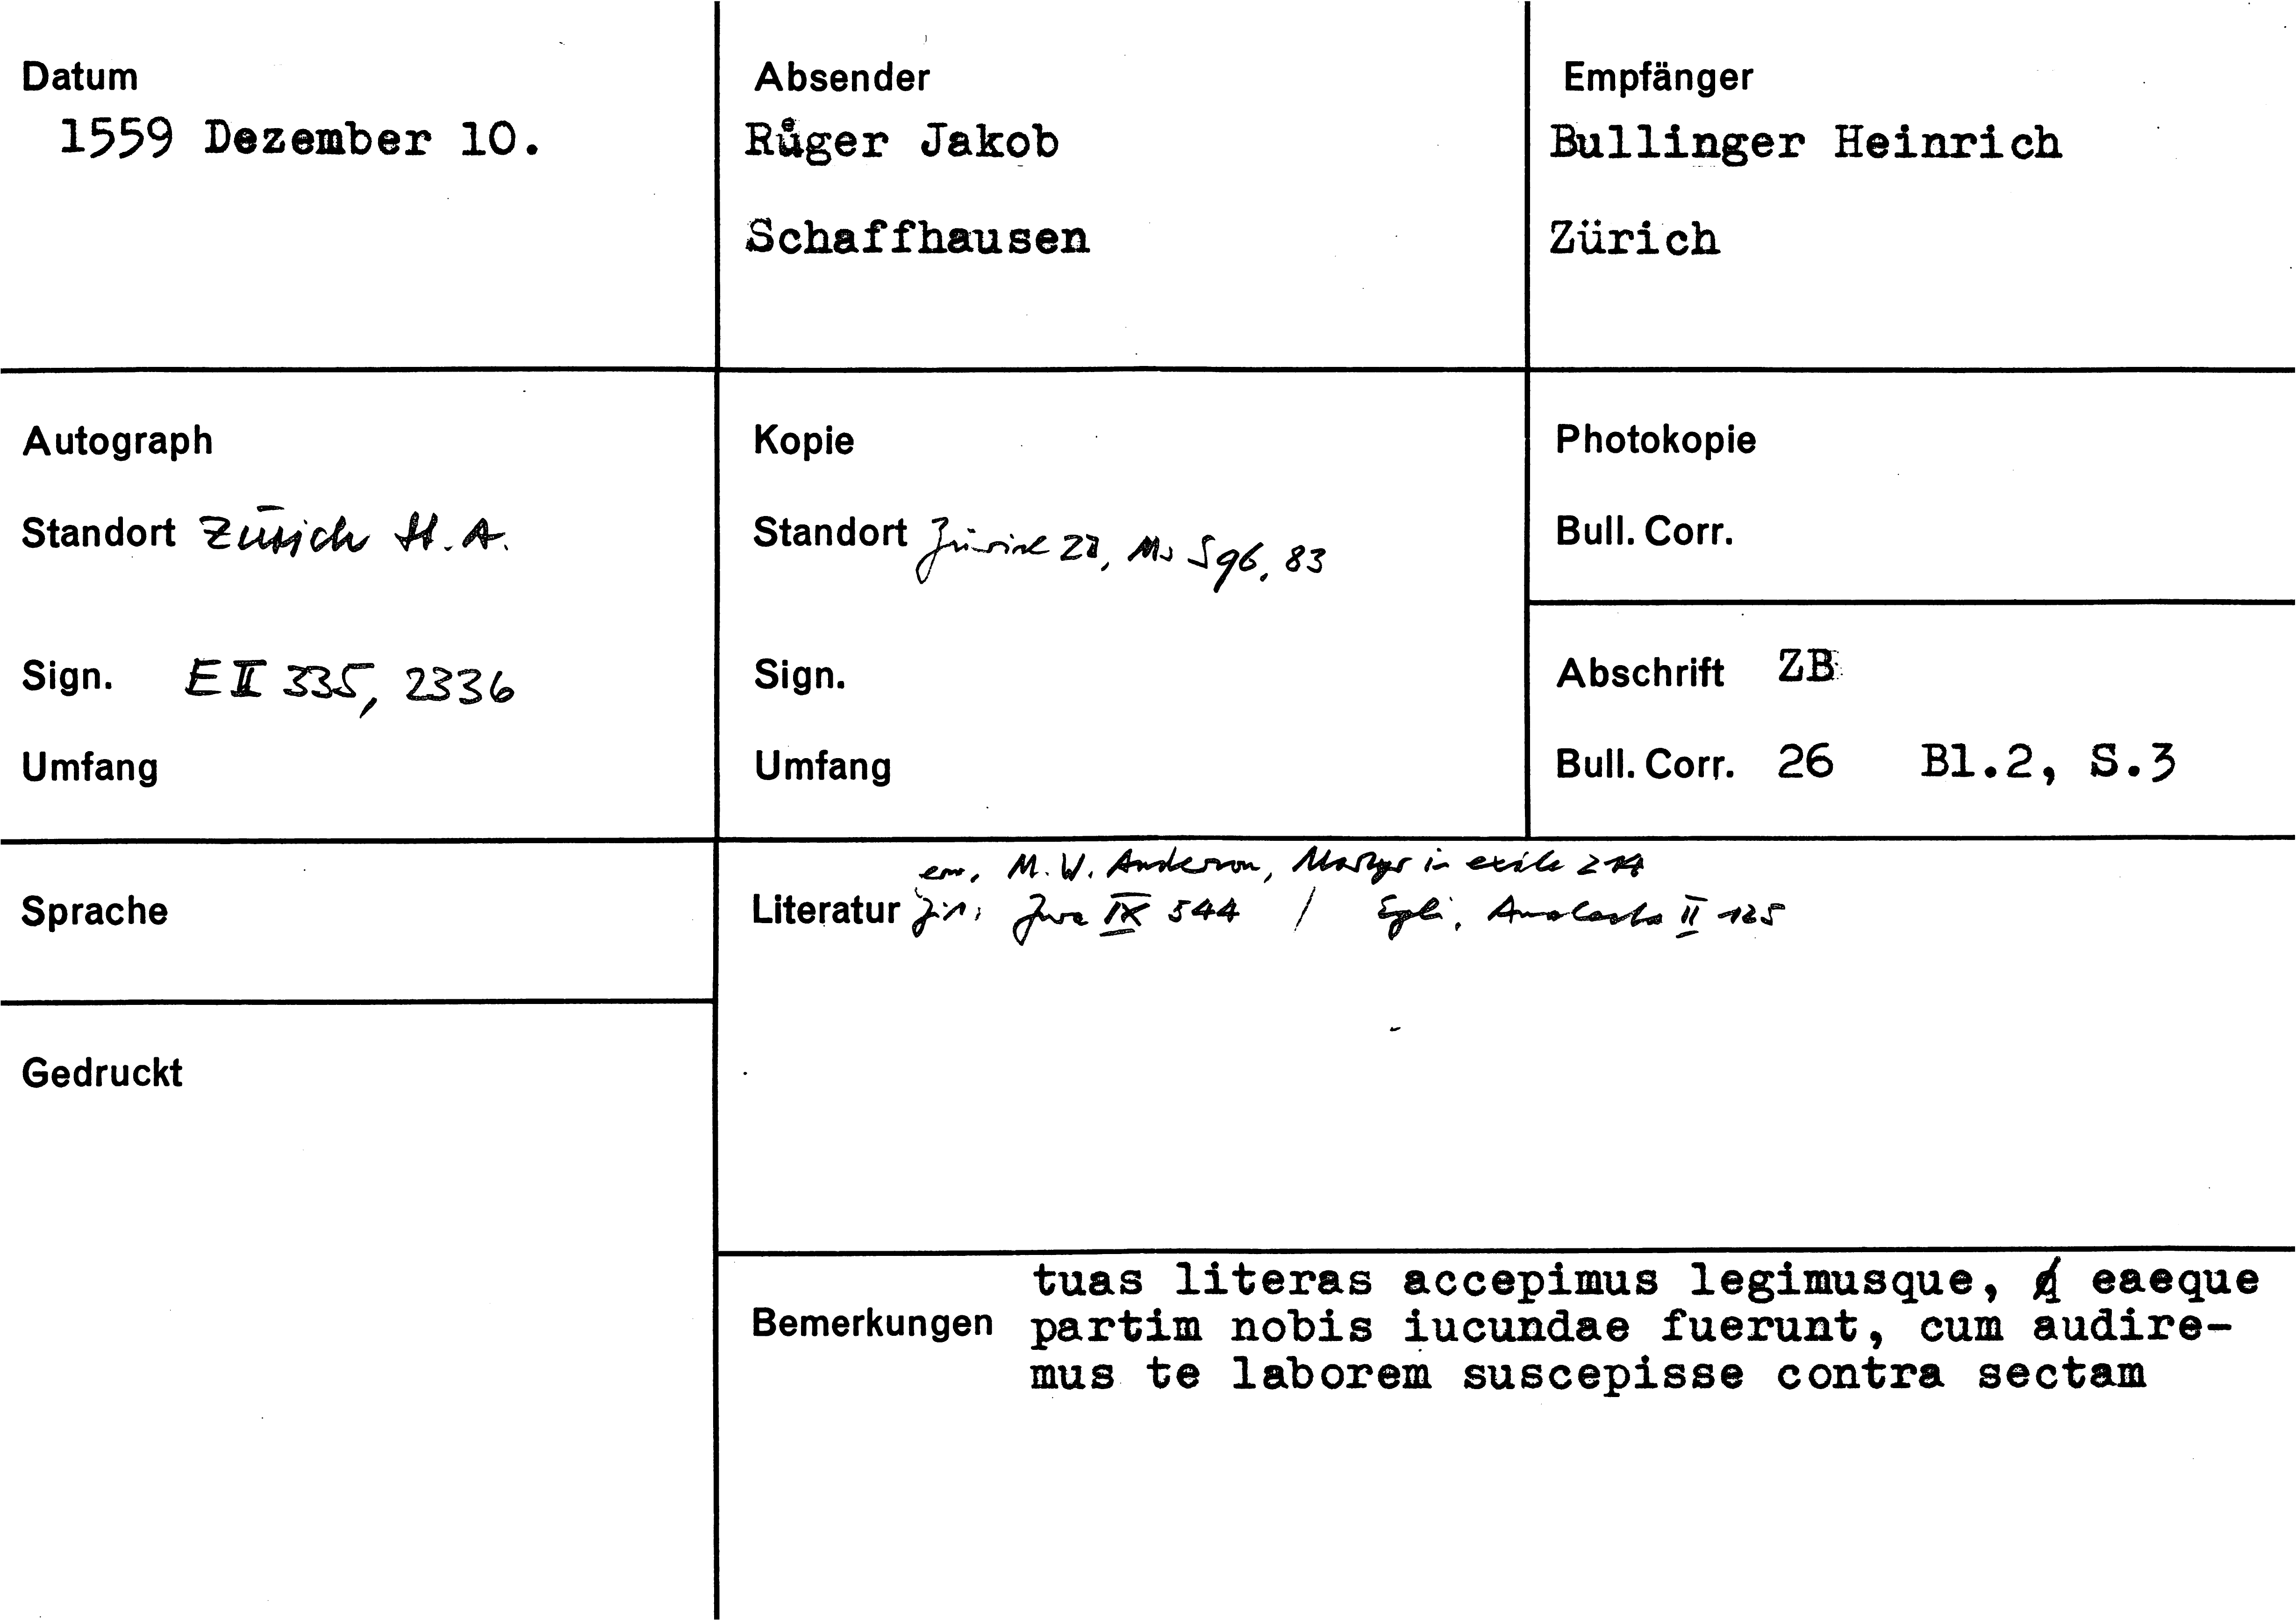 Datum
1559 Dezember 10.
Absender
Růger Jakob
Schaffhausen
Empfänger
Bullinger Heinrich
Zürich
Autograph
Standort Zürich St. A.
Sign. E II 335, 2336
Umfang
Kopie
Standort Zürich ZB, Ms S 96, 83
Sign.
Umfang
Photokopie
Bull. Corr.
Abschrift ZB
Bull. Corr. 26 Bl.2, S.3
Sprache
Gedruckt
erw. M. W. Anderson, Martyr in exile 214
Literatur zit. IX 544 / Egli, Analecta II 125
Bemerkungen
tuas literas accepimus legimusque, eaeque
partim nobis iucundae fuerunt, cum audire-
mus te laborem suscepisse contra sectam